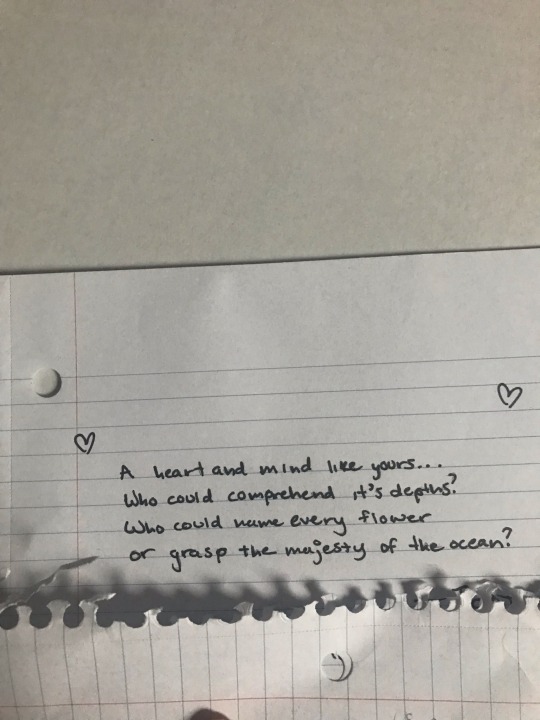 A heart and mind like yours...
Who could comprehend it's depths?
Who could name every flower
or grasp the majesty of the ocean?